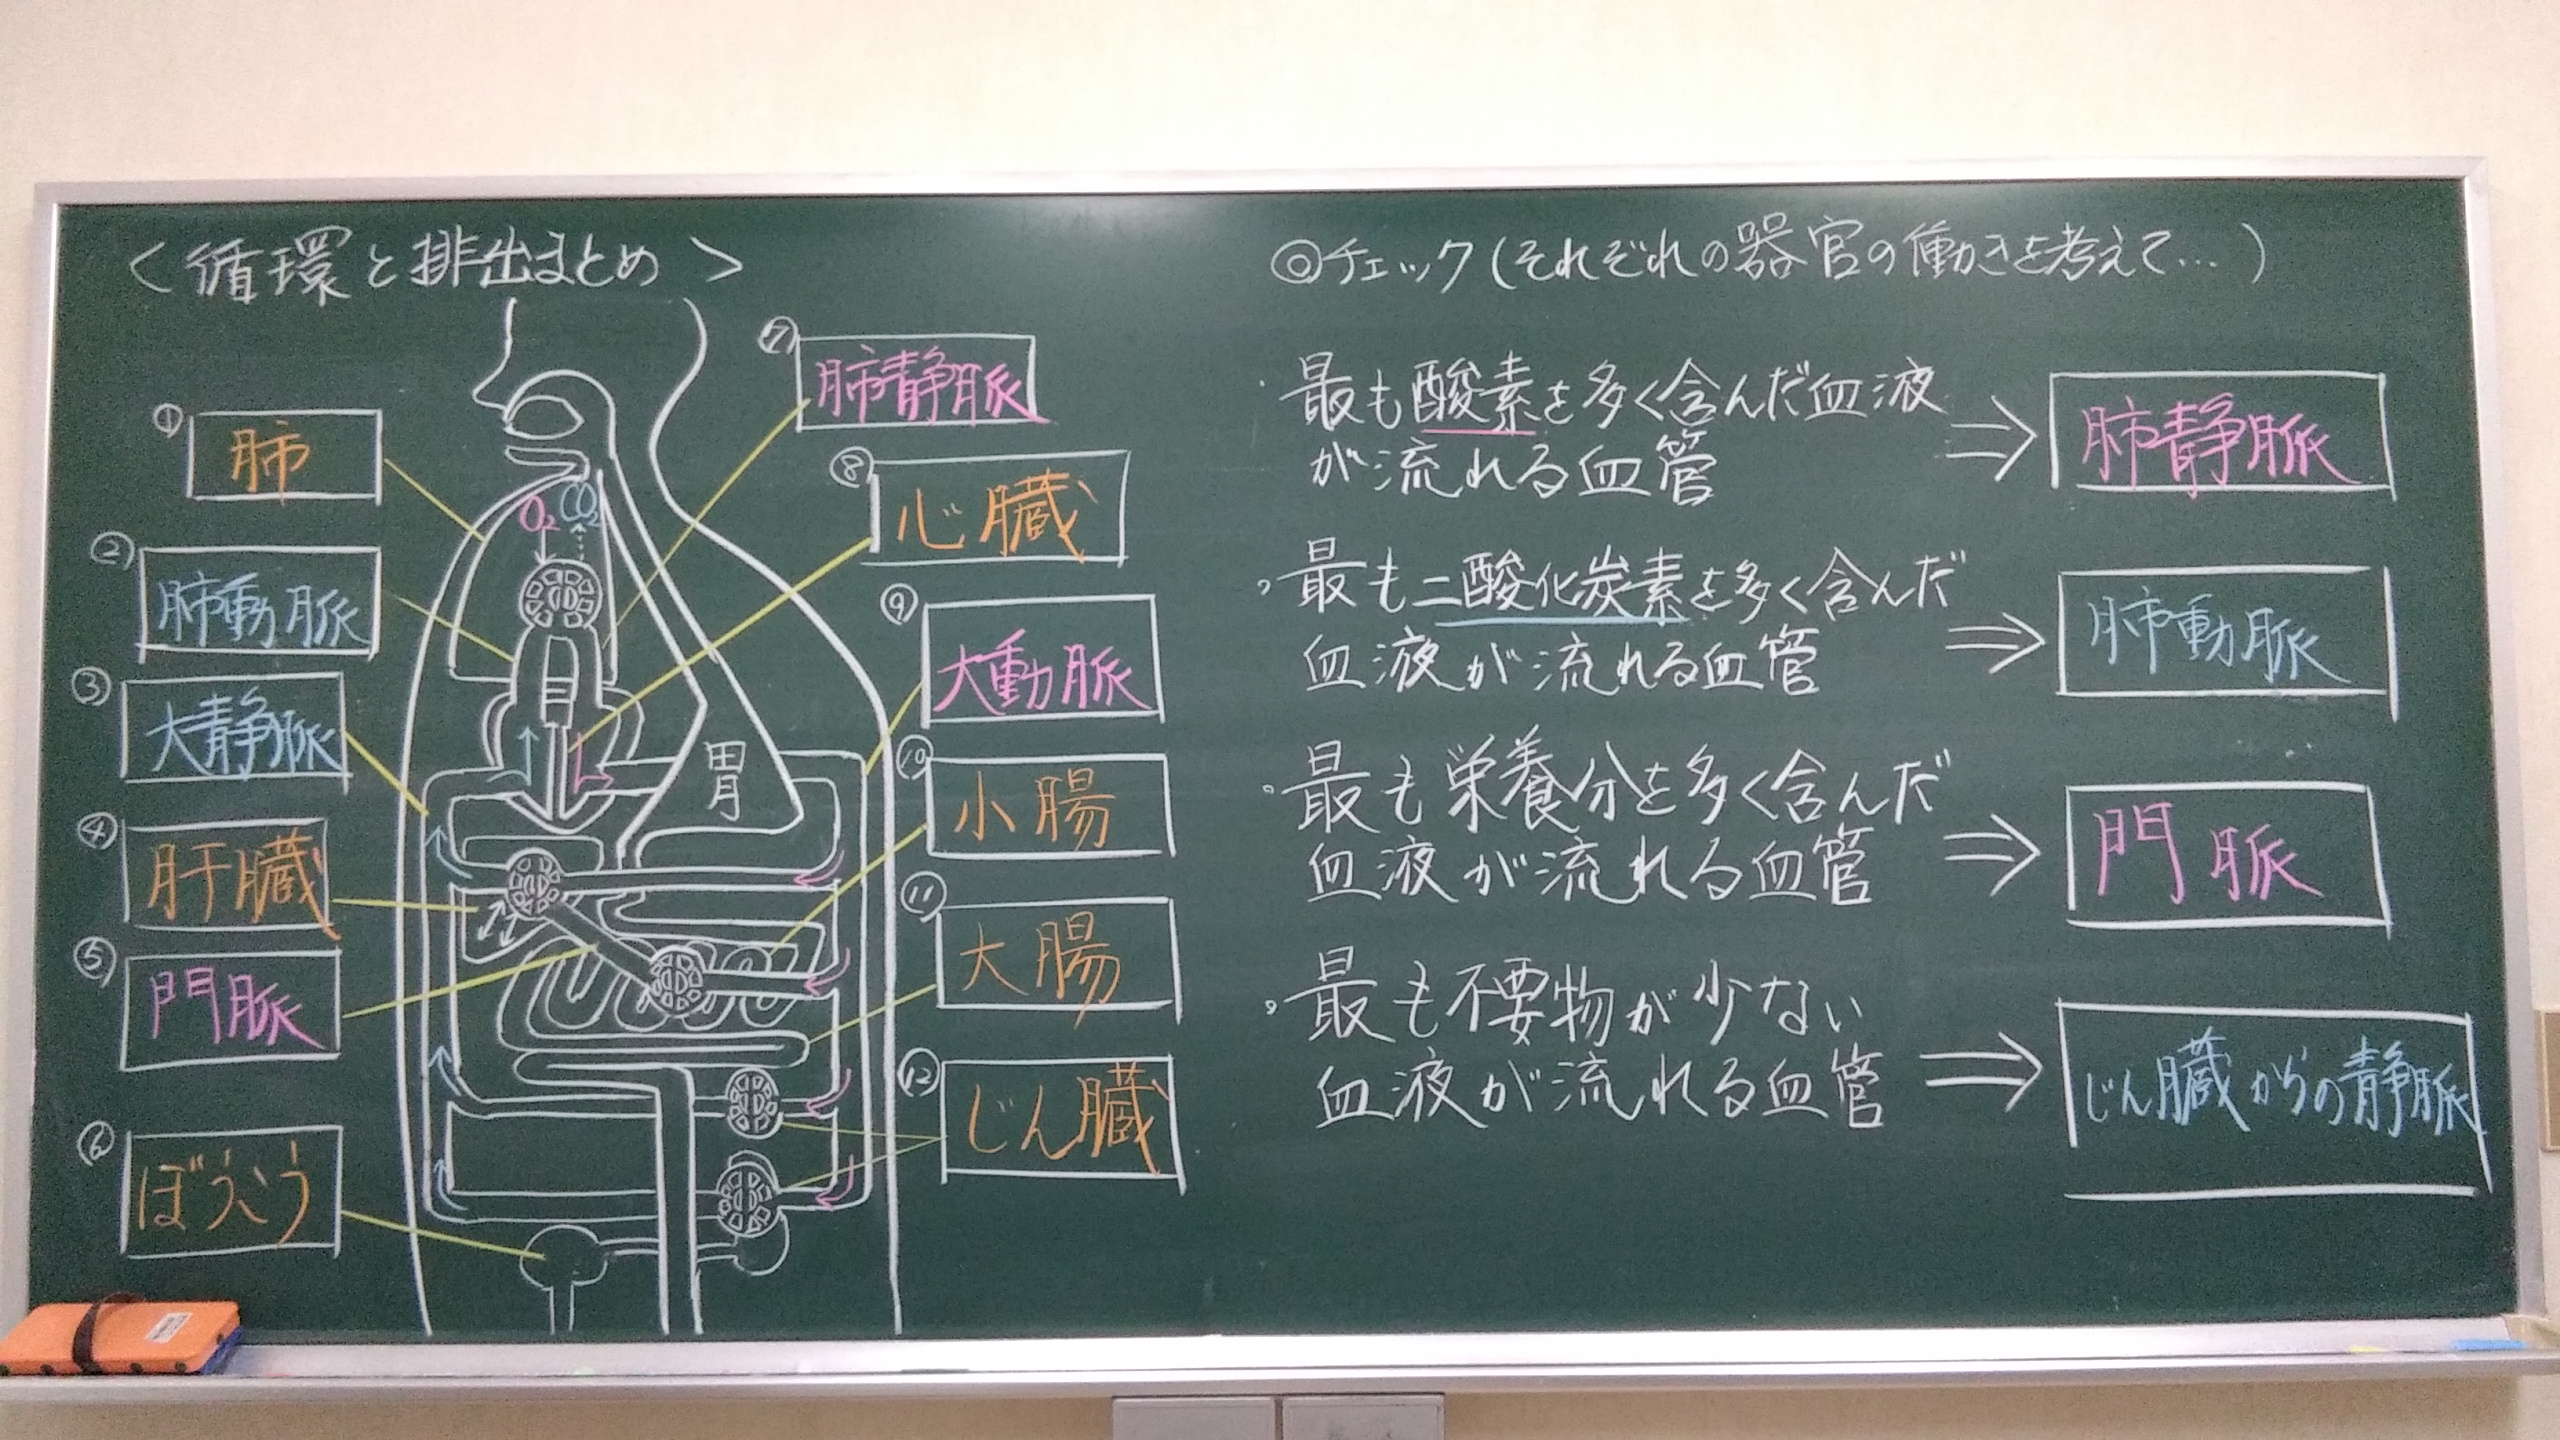 <循環と排出まとめ>
① 肺
② 肺動脈
③ 大静脈
④ 肝臓
⑤ 門脈
⑥ ぼうこう
O₂ CO₂
胃
⑦ 肺静脈
⑧ 心臓
⑨ 大動脈
⑩ 小腸
⑪ 大腸
⑫ じん臓
◎チェック(それぞれの器官の働きを考えて…)
・最も酸素を多く含んだ血液
が流れる血管 ⇒ 肺静脈
・最も二酸化炭素を多く含んだ
血液が流れる血管 ⇒ 肺動脈
・最も栄養分を多く含んだ
血液が流れる血管 ⇒ 門脈
・最も不要物が少ない
血液が流れる血管 ⇒ じん臓からの静脈